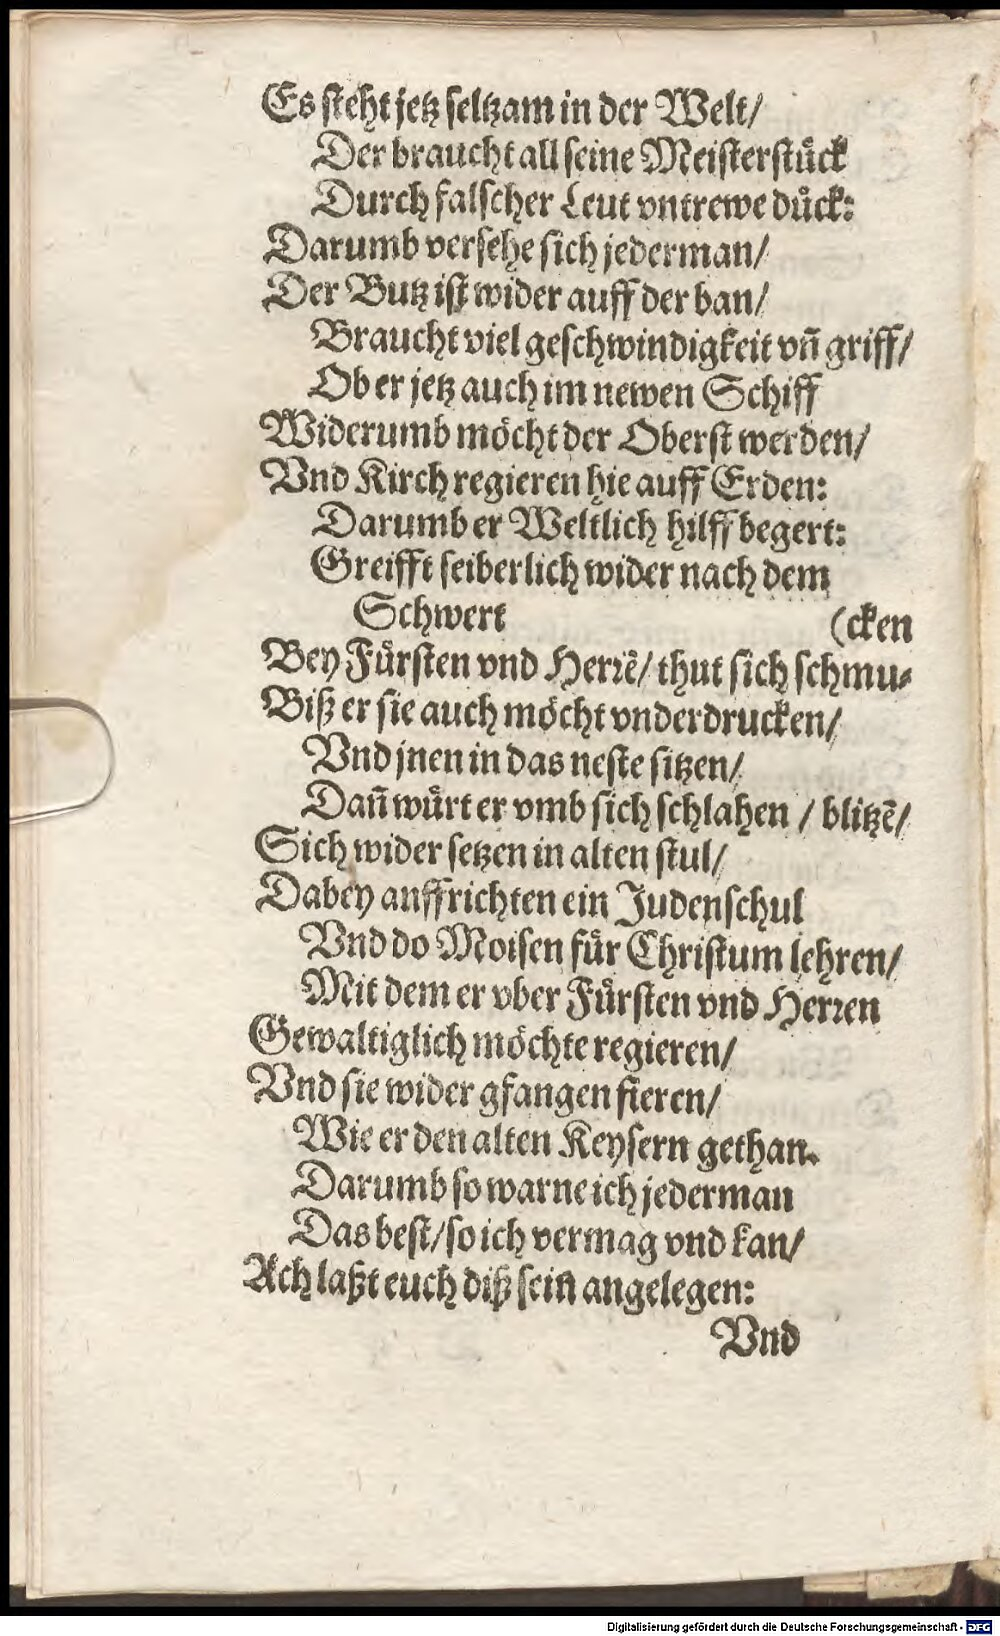 Es steht jetz seltzam in der Welt/
Der braucht all seine Meisterstuͤck
Durch falscher Leut vntrewe duͤck:
Darumb versehe sich jederman/
Der Butz ist wider auff der ban/
Braucht viel geschwindigkeit vñ griff/
Ob er jetz auch im newen Schiff
Widerumb moͤcht der Oberst werden/
Vnd Kirch regieren hie auff Erden:
Darumb er Weltlich hilff begert:
Greifft seiberlich wider nach dem
Schwert (cken
Bey Fuͤrsten vnd Herrẽ/ thut sich schmu-
Biß er sie auch moͤcht vnderdrucken/
Vnd jnen in das neste sitzen/
Dañ wuͤrt er vmb sich schlahen / blitzẽ/
Sich wider setzen in alten stul/
Dabey auffrichten ein Judenschul
Vnd do Moisen fuͤr Christum lehren/
Mit dem er vber Fuͤrsten vnd Herren
Gewaltiglich moͤchte regieren/
Vnd sie wider gfangen fieren/
Wie er den alten Keysern gethan.
Darumb so warne ich jederman
Das best/ so ich vermag vnd kan/
Ach laßt euch diß sein angelegen:
Vnd
Digitalisierung gefördert durch die Deutsche Forschungsgemeinschaft - DFG